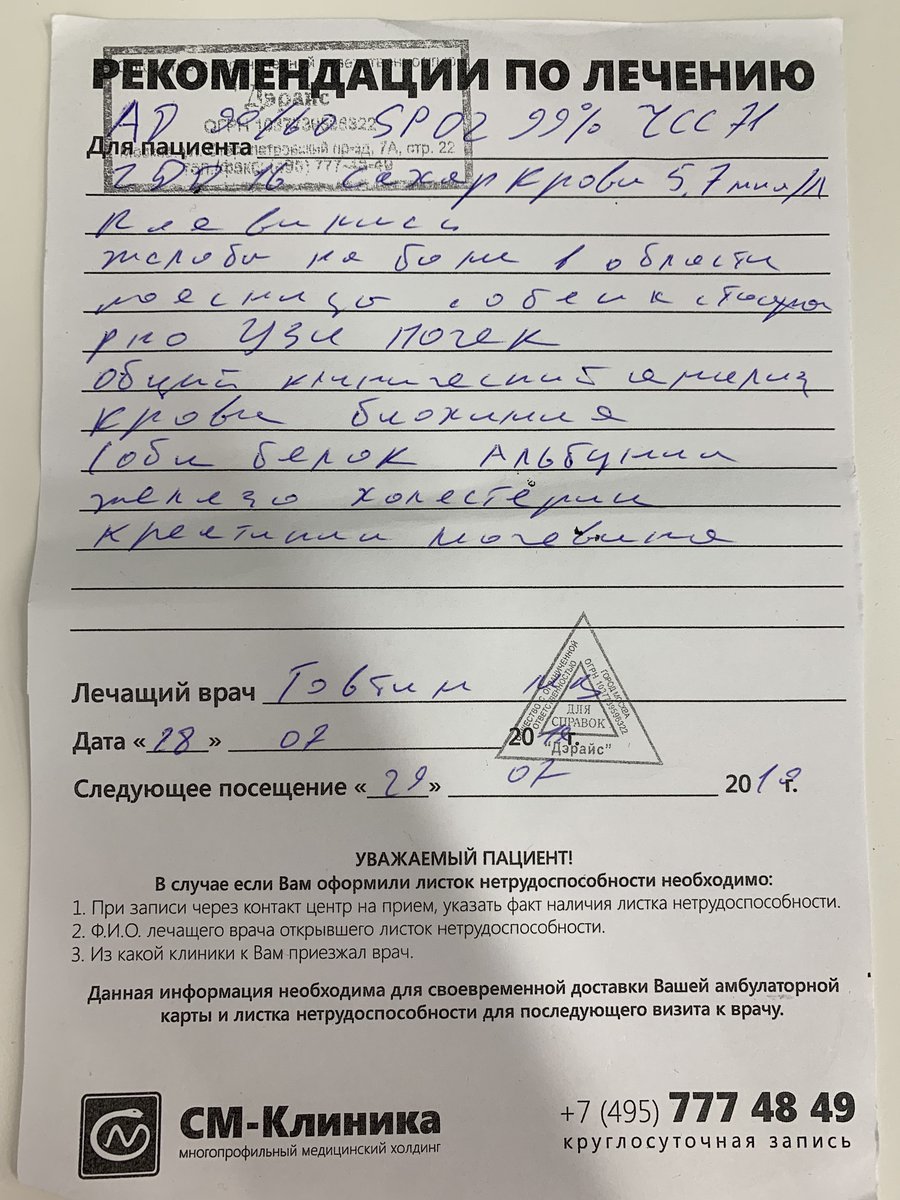 РЕКОМЕНДАЦИИ ПО ЛЕЧЕНИЮ
Дэрайс
ОГРН 1037739596322
7А, стр. 22
тел./факс (495) 777-48-49
АД 90/60 SPO2 99% ЧСС 71
Для пациента
16 Сахар крови 5,7 ммл/л
жалобы на боли в области
поясницы с обеих сторон
УЗИ почек
Общий клинический анализ
крови биохимия
(общ белок Альбумин
железо холестерин
креатинин мочевина
Лечащий врач
Дата «28» 07 20 г.
Следующее посещение «29» 07 2019 г.
ГОРОД МОСКВА
ОГРН 1037739596322
ОБЩЕСТВО С ОГРАНИЧЕННОЙ
ОТВЕТСТВЕННОСТЬЮ
ДЛЯ
СПРАВОК
"Дэрайс"
УВАЖАЕМЫЙ ПАЦИЕНТ!
В случае если Вам оформили листок нетрудоспособности необходимо:
1. При записи через контакт центр на прием, указать факт наличия листка нетрудоспособности.
2. Ф.И.О. лечащего врача открывшего листок нетрудоспособности.
3. Из какой клиники к Вам приезжал врач.
Данная информация необходима для своевременной доставки Вашей амбулаторной
карты и листка нетрудоспособности для последующего визита к врачу.
СМ-Клиника
многопрофильный медицинский холдинг
+7 (495) 777 48 49
круглосуточная запись